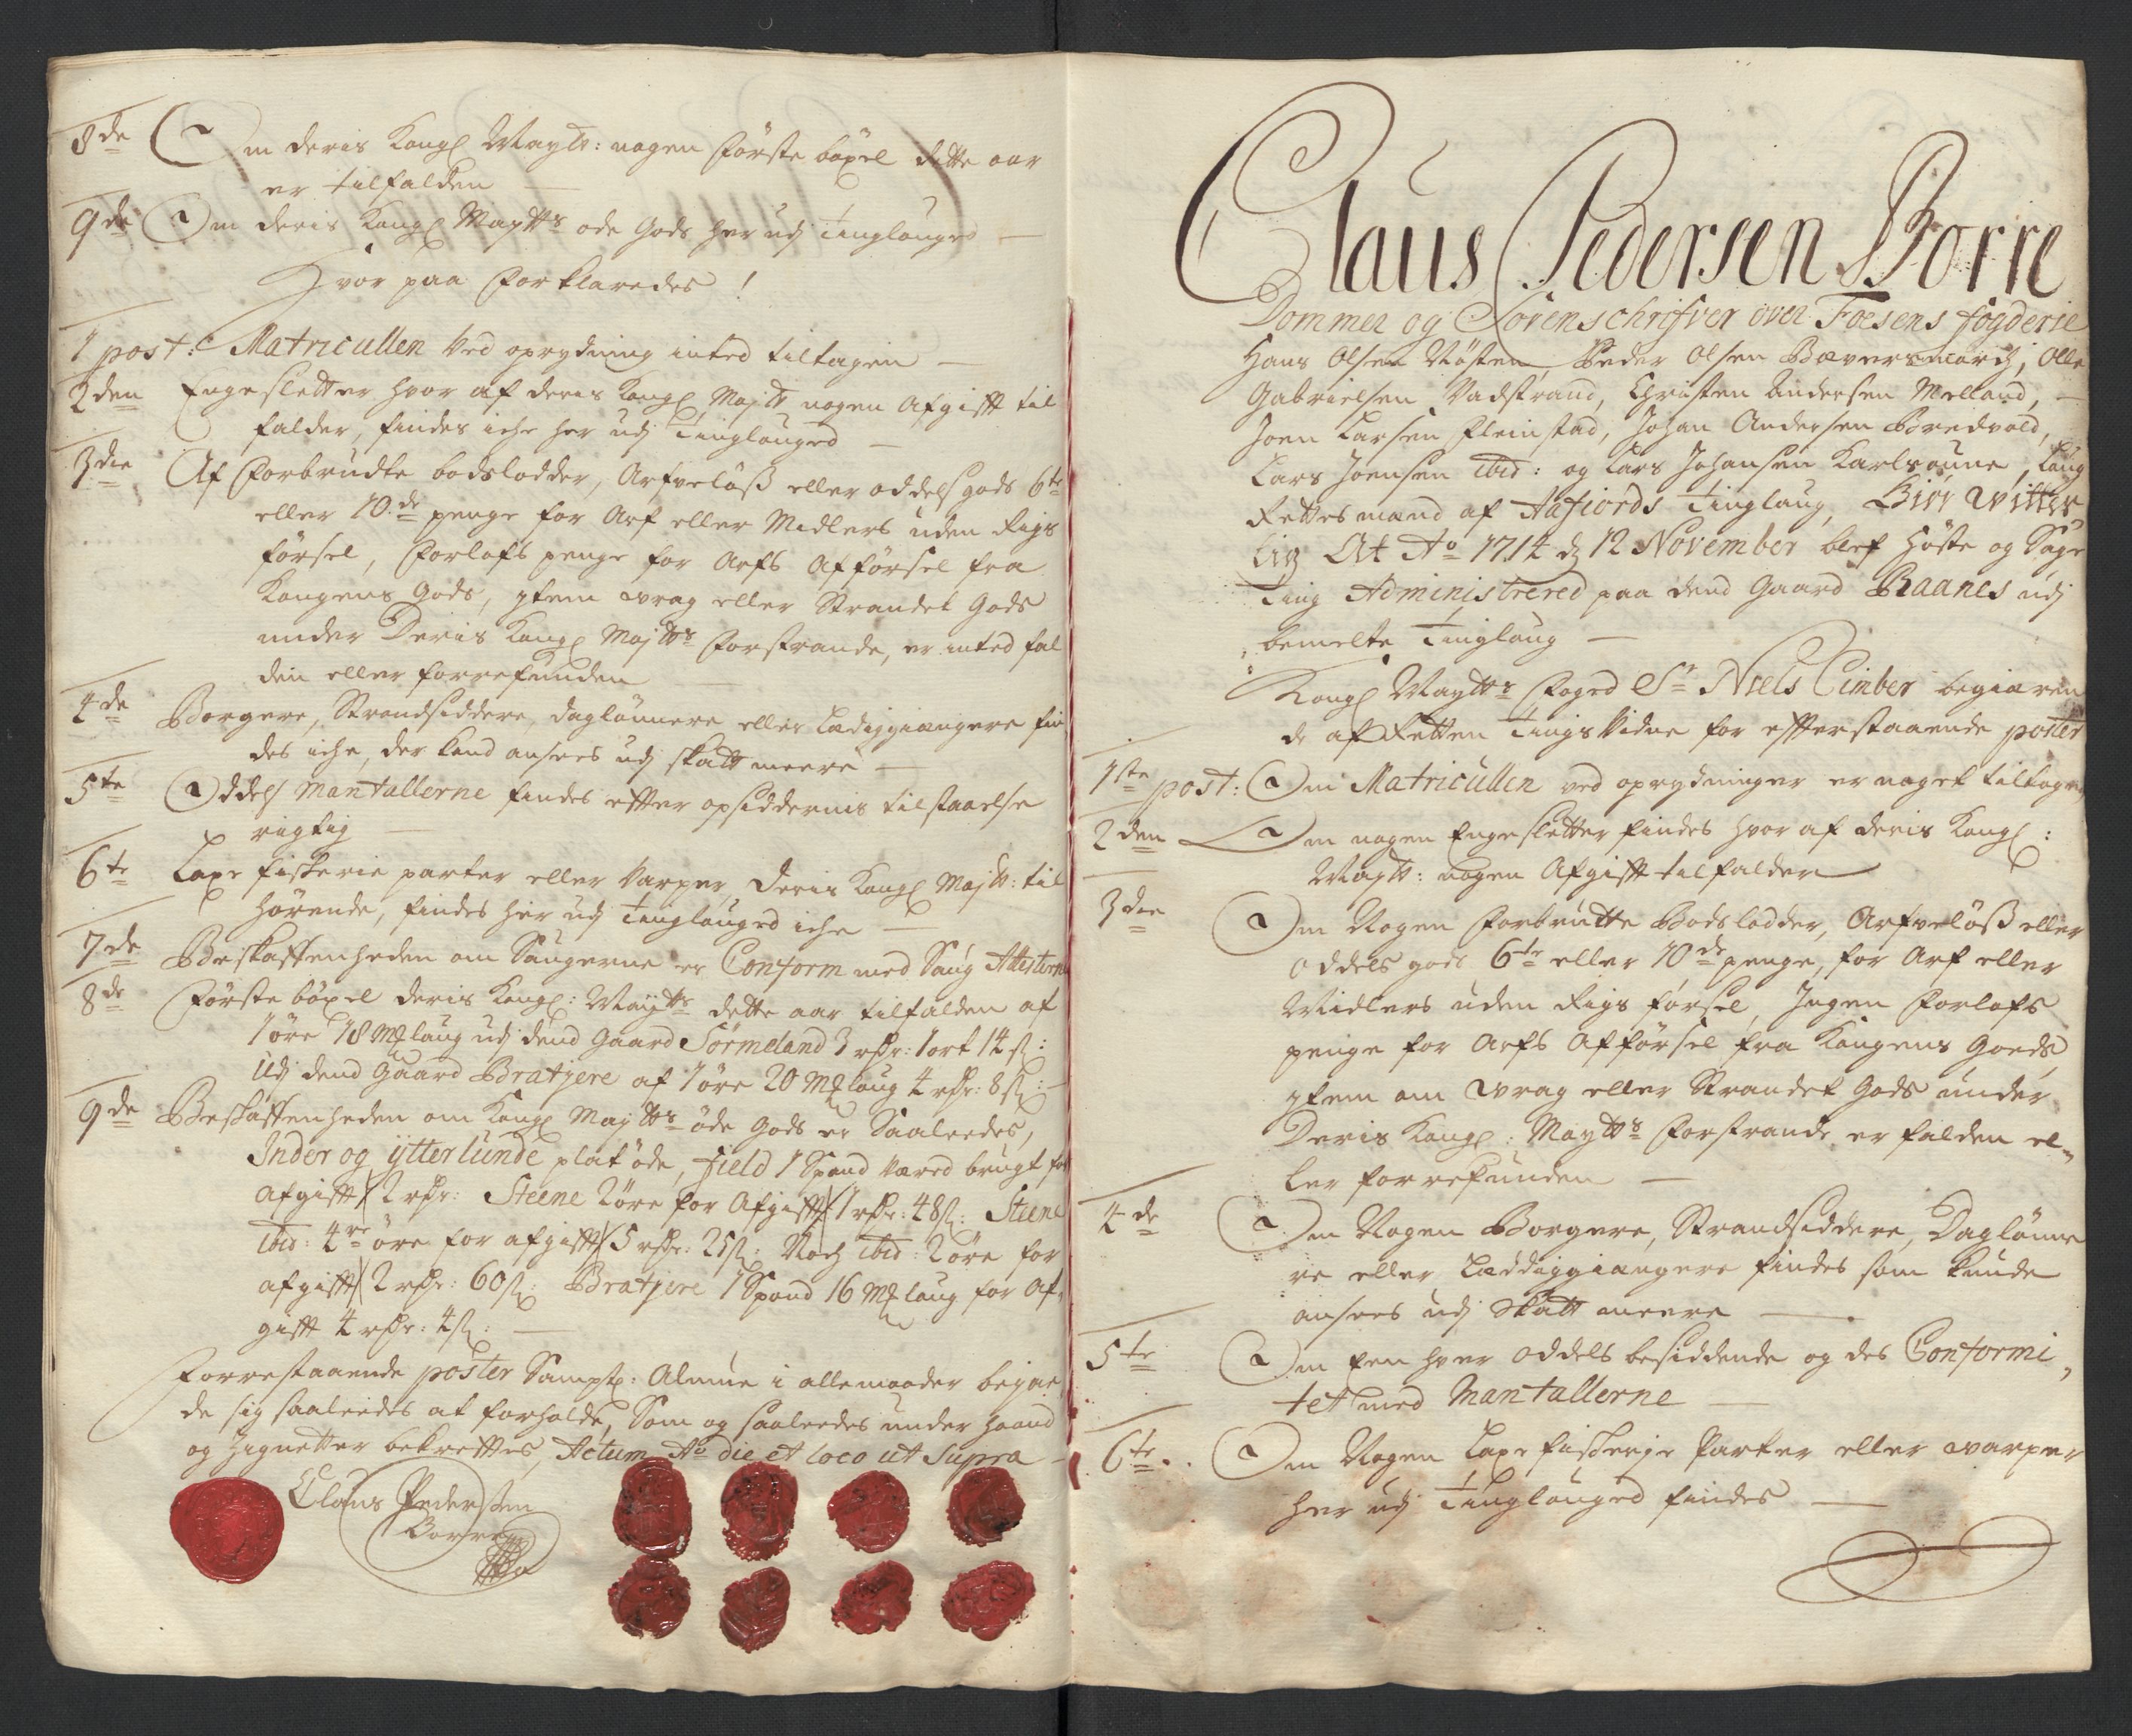 8de Om deris Kongl Mayts: nogen förste böxel dette aar
er tilfalden
9de Om deris Kongl Maytts öde Gods her udj Tinglauged
Hvor paa forklaredes!
1 post: Matricullen ved oprydning inted tiltagen
2den Engesletter hvor af deris Kongl Maytt nogen Afgifft til
falder, findes iche her udj Tinglauged
3die Af forbrudte bodslodder, Arfvelöss eller oddels gods 6te
eller 10de penge for Arf eller Midlers uden Rigs
försel, forlofs penge for Arfs Afförsel fra
Kongens Gods, jtem vrag eller Strandet Gods
under Deris Kongl Maytts forstrande, er inted fal
den eller forrefunden
4de Borgere, Strandsiddere, daglönnere eller Lædiggiængere fin
des iche, der kand ansees udj skatt meere
5te Oddels Mantallerne findes effter opsiddernis tilstaaelse
rigtig
6te Laxe fiskerie parter eller Varper, Deris Kongl Maytt: til
hörende, findes her udj Tinglauged iche
7de Beskaffenheden om Saugerne er Conform med Saug Attesterne
8de Förste böxel deris Kongl: Maytts dette aar tilfalden af
1 öre 18 Mk laug udj dend Gaard Sörmeland 3 rdr: 1 ort 14 s:
Udj dend Gaard Bratjere af 1 öre 20 Mk laug 4 rdr: 8 s:
9de Beskaffenheden om Kongl Maytts öde Gods er Saaleedes,
Inder og ytterlunde plat öde, Field 1 Spand Væred brugt for
afgifft 2 rdr: Steene 2 öre for Afgifft 1 rdr: 48 s: Steene
ibid: 4re öre for afgifft 5 rdr: 25 s: Noch ibid: 2 öre for
afgifft 2 rdr: 60 s: Bratjere 1 Spand 16 Mk laug for Af
gifft 4 rdr: 4 s:
Forrestaaende poster Sampt: Almue i alle maader bejae
de sig saaleedes at forholde, Som og saaleedes under haand
og Zignetter bekrefftes, Actum Ao die et loco ut Supra
Claus Pedersen
Borre
Claus Pedersen Borre
Dommer og Sorenschrifver over Foesens fogderie
Hans Olsen Peder Olsen Olle
Gabrielsen Vadstrand, Christen Andersen Melland,
Joen Larsen Fleinstad, Johan Andersen Bredvold,
Lars Joensen ibid: og Lars Johansen Karlsoune, Laug
Rettesmænd af Aafiords Tinglaug, Giör Vitter
lig At Ao 1714 d 12 November blef Höste og Sage
Ting Administrered paa dend Gaard Raanes udj
bemelte Tinglaug
Kongl Maytts foged Sr Niels Cimber begiæren
de af Retten Tings Vidne for effterstaaende poster
1ste post: Om Matricullen ved oprydninger er noget tiltagen
2den Om nogen Engesletter findes hvor af deris Kongl:
Maytt: nogen Afgifft tilfalder
3die Om Nogen forbrutte Bodslodder, Arfvelöss eller
oddels gods 6te eller 10de penge, for Arf eller
Midlers uden Rigs försel, Ingen forlofs
penge for Arfs Afförsel fra Kongens Goeds
jtem om vrag eller Strandet Gods under
Deris Kongl: Maytts forstrande er falden el
ler forrefunden
4de Om Nogen Borgere, Strandsiddere, Daglönne
re eller Læddiggiængere findes som kunde
ansees udj Skatt meere
5te Om Een hver oddels besiddende og des Conformi
tet med Mantallerne
6te Om Nogen Laxe fiskerje Parter eller varper
her udj Tinglauged findes